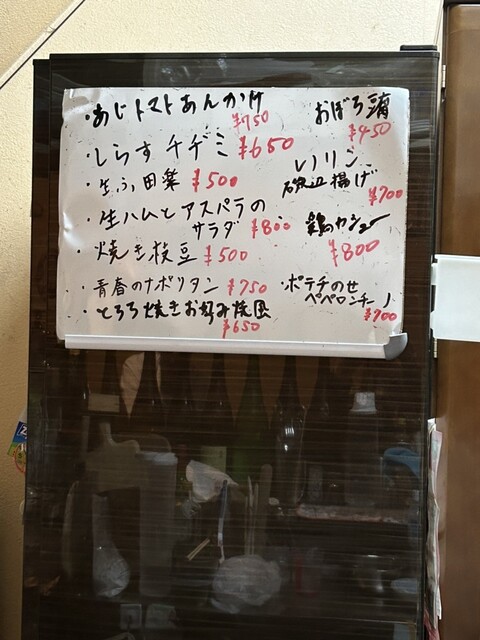 ・あじトマトあんかけ
¥750
・しらすチヂミ ¥650
・生ふ田楽 ¥500
・生ハムとアスパラの
サラダ ¥800
・焼き枝豆 ¥500
・青春のナポリタン ¥750
・とろろ焼きお好み焼風
¥650
おぼろ
¥450
磯辺揚げ
¥700
鶏のカシュー
¥800
・ポテチのせ
ペペロンチーノ
¥700